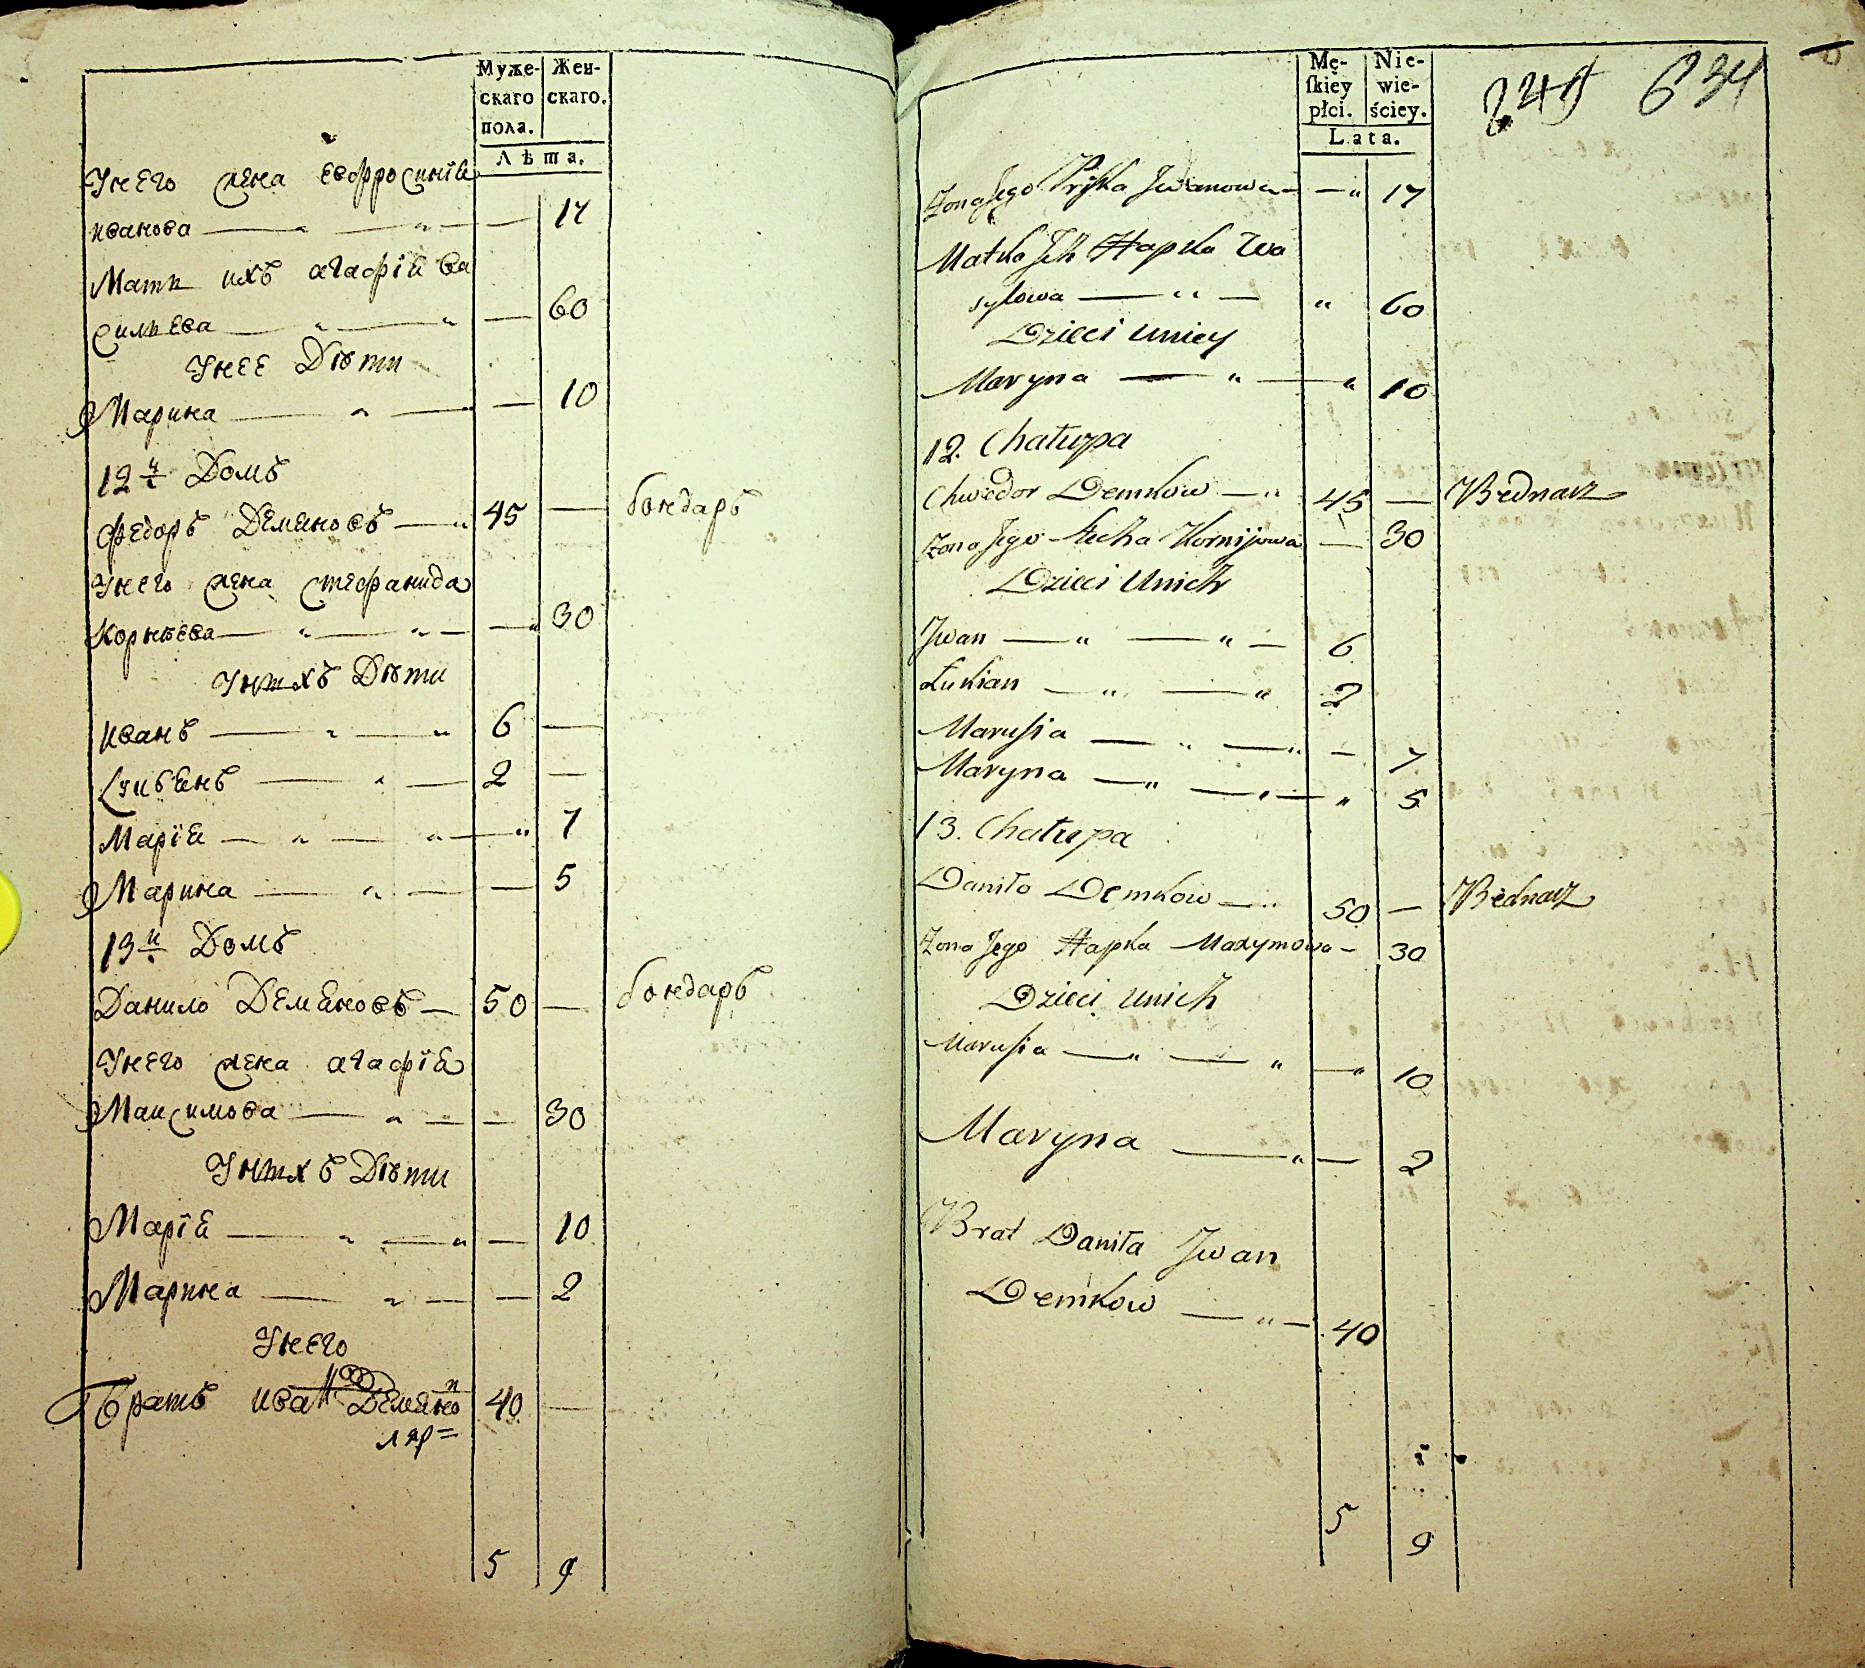 Муже-
скаго
пола.
Жен-
скаго.
Лѣта.
Унего жена Евфросинїя
Иванова — 17
Мати ихъ агафїя Ва
силиева — 60
Унее Дѣти
Марина — 10
12й Домъ
Федоръ Демяновъ — 45 — бондаръ
Унего жена Стефанида
Корнѣева — 30
Унихъ Дѣти
Иванъ — 6 —
2 —
Марїя — 7
Марина — 5
13й Домъ
Данило Демяновъ — 50 — бондаръ
Унего жена агафїя
Максимова — 30
Унихъ Дѣти
Марїя — 10
Марина — 2
Унего
Братъ Иван 40 —
5 9
Mę-
ſkiey
płci.
Nie-
wie-
ściey.
Lata.
634
Zona Jego Pryska Jwanowa — 17
Matka Jch Hapka Wa
sylowa — 60
Dzieci Uniey
Maryna — 10
12. Chałupa
Chwedor Demkow — 45 — Bednarz
Zona Jego Kornijowa — 30
Dzieci Unich
Jwan — 6
Łukian — 2
Marusia — 7
Maryna — 5
13. Chałupa
Daniło Demkow — 50 — Bednarz
Zona Jego Hapka Maxymowa — 30
Dzieci Unich
Marusia — 10
Maryna — 2
Brat Daniła Jwan
Demkow — 40
5 9